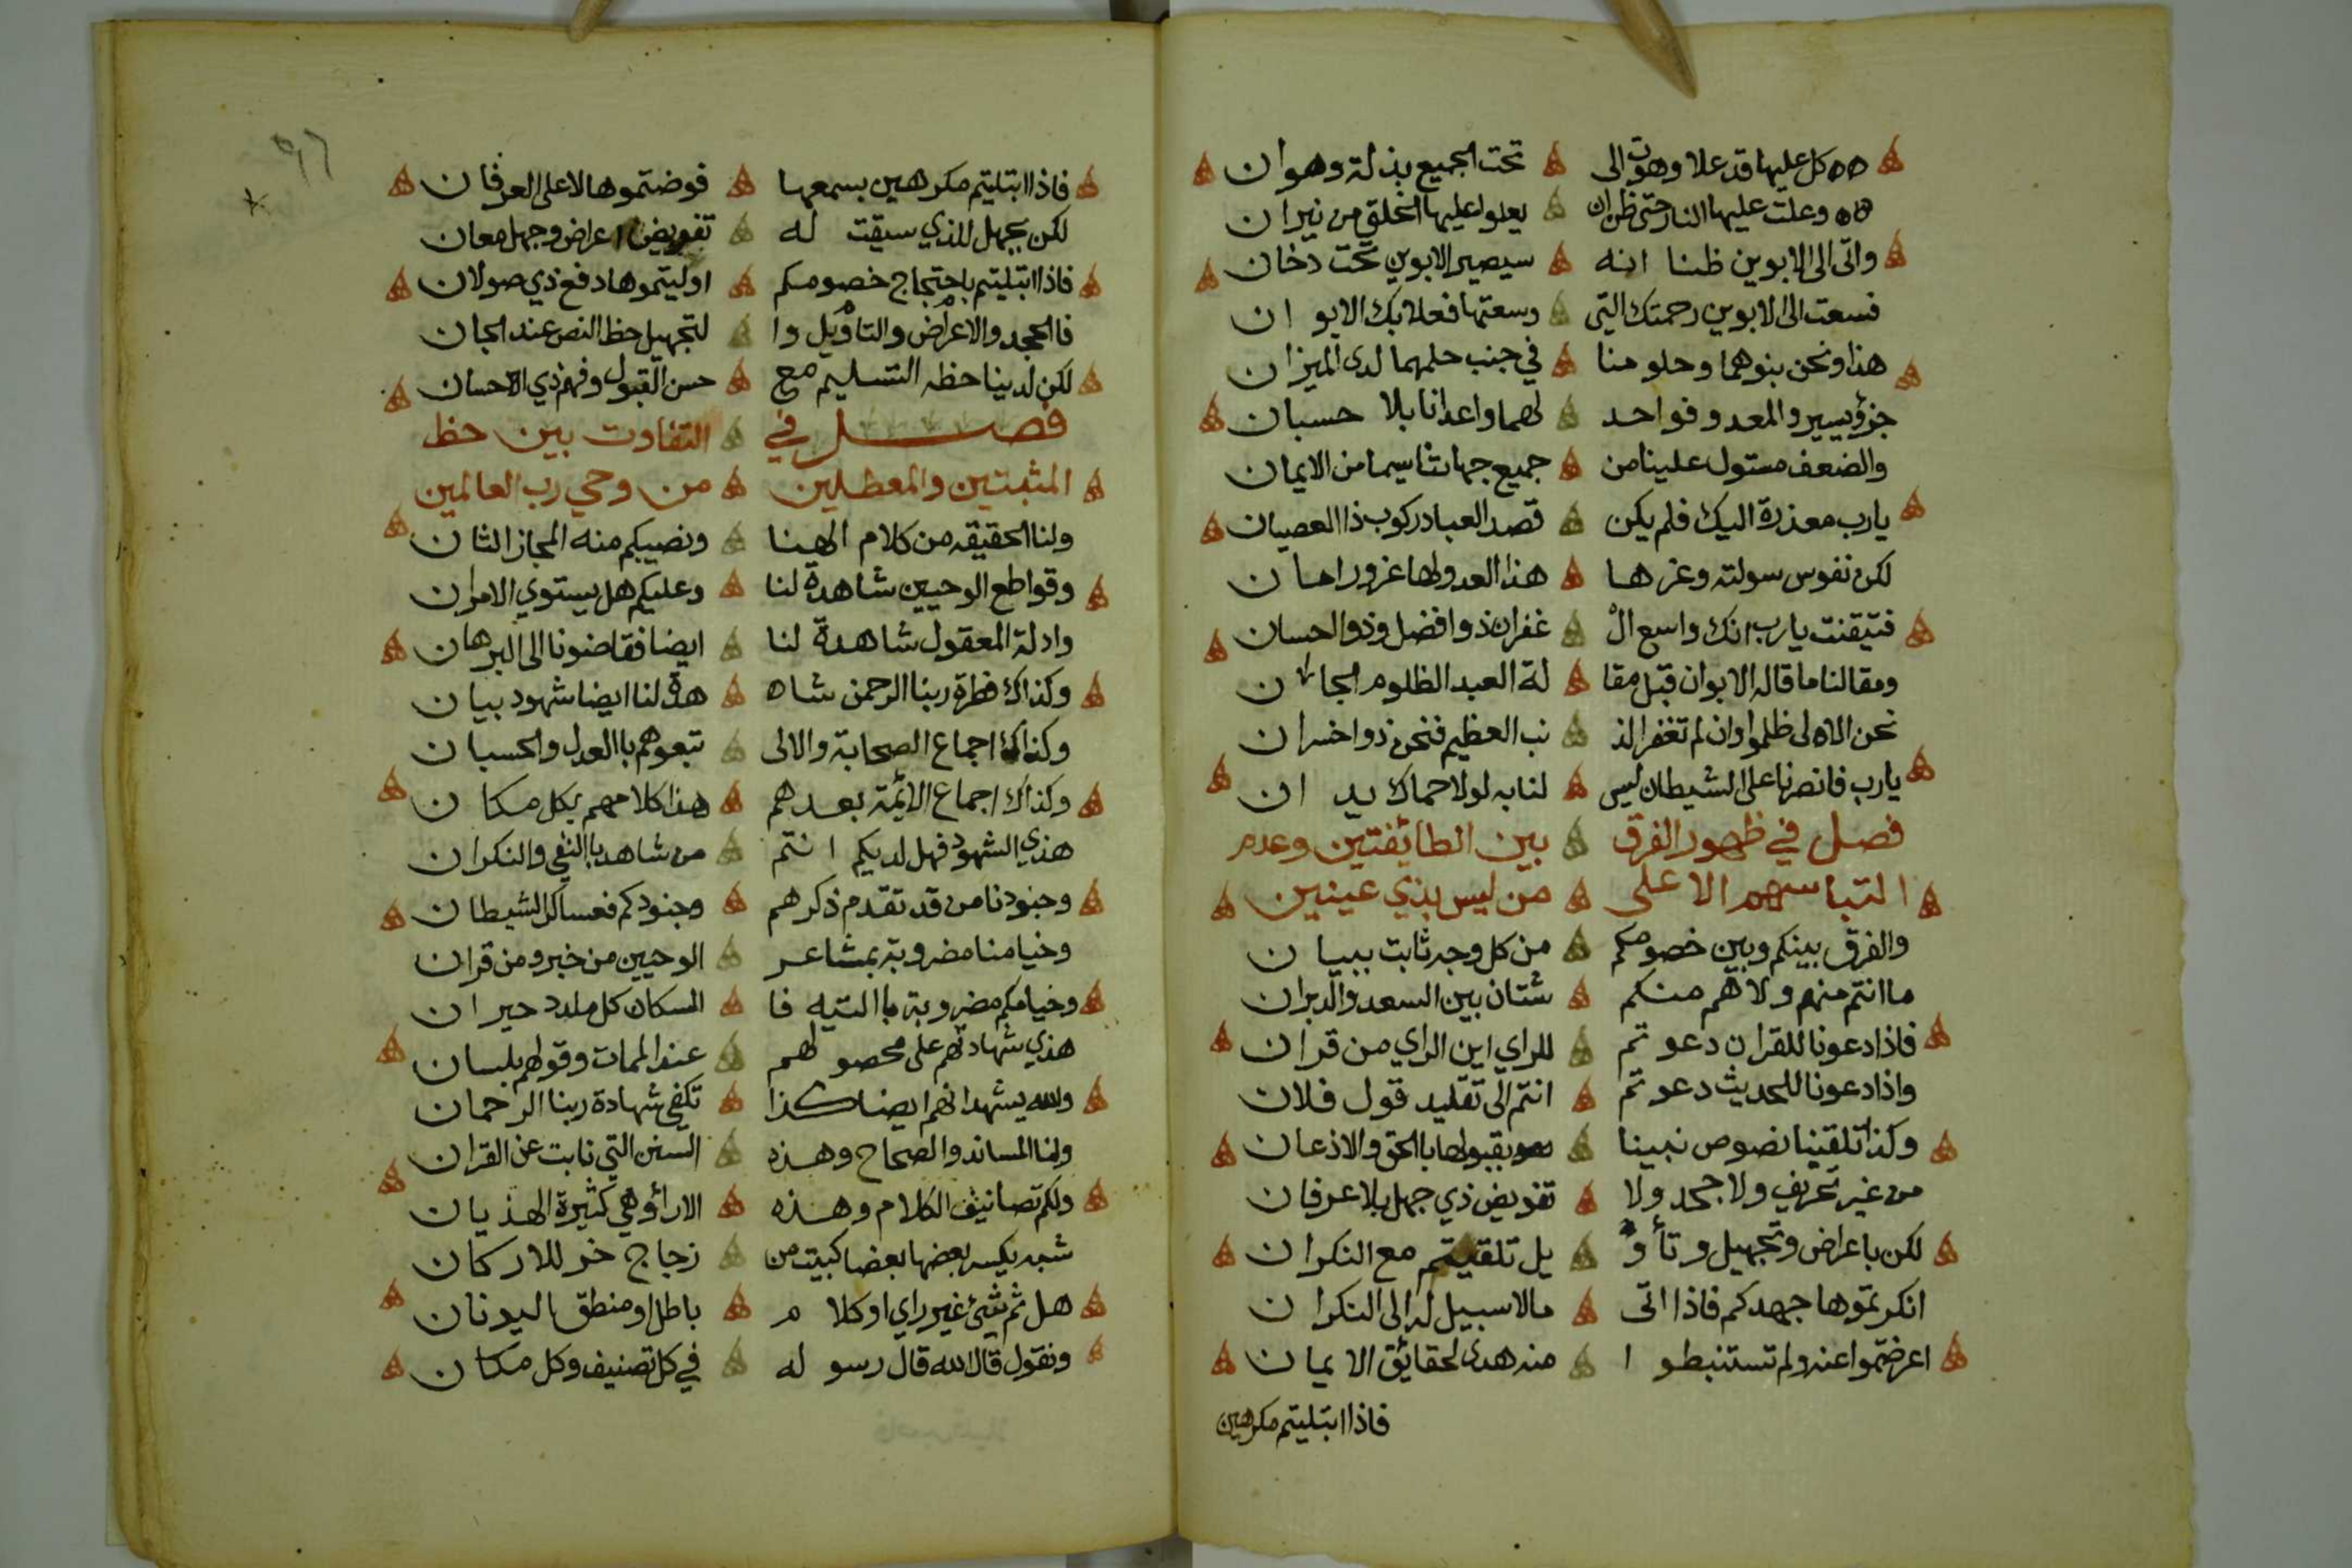 كل عليها قد علا وهوت الى تحت الجميع بذلة وهوان
وعلت عليها النار حتى ظن ان يعلوا عليها الخلق من نيران
واتى الى الابوين ظنا انه سيصير الابوين تحت دخان
فسعت الى الابوين رحمتك التي وسعتهما فعلا بك الابوان
هذا ونحن بنوهما وحلومنا في جنب حلمهما لدى الميزان
جزؤ يسير والمعدو فواحد لهما واعدانا بلا حسبان
والضعف مستول علينا من جميع جهاتنا سيما من الايمان
يارب معذرة اليك فلم يكن قصد العباد ركوب ذا العصيان
لكن نفوس سولته وغرها هذا العدو لها غرور امان
فتيقنت يارب انك واسع ال غفران ذو افضل وذو الحسان
ومقالنا ما قاله الابوان قبل مقا لة العبد الظلوم الجان
نحن الاولى ظلموا وان لم تغفر الذ نب العظيم فنحن ذوا خسران
يارب فانصرنا على الشيطان ليس لنا به لولا حماك يدان
فصل في ظهور الفرق بين الطائفتين وعدم
التباسهم الا على من ليس بذي عينين
والفرق بينكم وبين خصومكم من كل وجه ثابت ببيان
ما انتم منهم ولا هم منكم شتان بين السعد والدبران
فاذا دعونا للقران دعوتم للراي اين الراي من قران
واذا دعونا للحديث دعوتم انتم الى تقليد قول فلان
وكذا تلقينا نصوص نبينا بقبولها بالحق والاذعان
من غير تحريف ولا جحد ولا تفويض ذي جهل بلا عرفان
لكن باعراض وتجهيل وتأو يل تلقيتم مع النكران
انكرتموها جهدكم فاذا اتى مالا سبيل له الى النكران
اعرضتموا عنه ولم تستنبطوا منه هدى لحقائق الايمان
فاذا ابتليتم مكرهين
فاذا ابتليتم مكرهين بسمعها فوضتموها لا على العرفان
لكن بجهل للذي سيقت له تفويض اعراض وجهل معان
فاذا ابتليتم باحتجاج خصومكم اوليتموها دفع ذي صولان
فالجحد والاعراض والتاويل وا لتجهيل حظ النص عند الجان
لكن لدينا حظه التسليم مع حسن القبول وفهم ذي الاحسان
فصل في التفاوت بين حظ
المثبتين والمعطلين من وحي رب العالمين
ولنا الحقيقه من كلام الهنا ونصيبكم منه المجاز الثان
وقواطع الوحيين شاهدة لنا وعليكم هل يستوي الامران
وادلة المعقول شاهدة لنا ايضا فقاضونا الى البرهان
وكذاك فطرة ربنا الرحمن شاه هدة لنا ايضا شهود بيان
وكذاك اجماع الصحابة والالى تبعوهم باالعدل والحسبان
وكذاك اجماع الائمة بعدهم هذا كلامهم بكل مكان
هذي الشهود فهل لديكم انتم من شاهد باالنفي والنكران
وجنودنا من قد تقدم ذكرهم وجنودكم فعساكر الشيطان
وخيامنا مضروبة بمشاعر الوحيين من خبر ومن قران
وخيامكم مضروبة باالتيه فا السكان كل ملدد حيران
هذي شهادتهم على محصولهم عند الممات وقولهم بلسان
والله يشهد انهم ايضا كذا تكفي شهادة ربنا الرحمان
ولنا المساند والصحاح وهذه السنن التي نابت عن القران
ولكم تصانيف الكلام وهذه الاراؤ وهي كثيرة الهذيان
شبه يكسر بعضها بعضا كبيت من زجاج خر للاركان
هل ثم شيئ غير راي او كلام باطل او منطق اليونان
ونقول قال الله قال رسوله في كل تصنيف وكل مكان